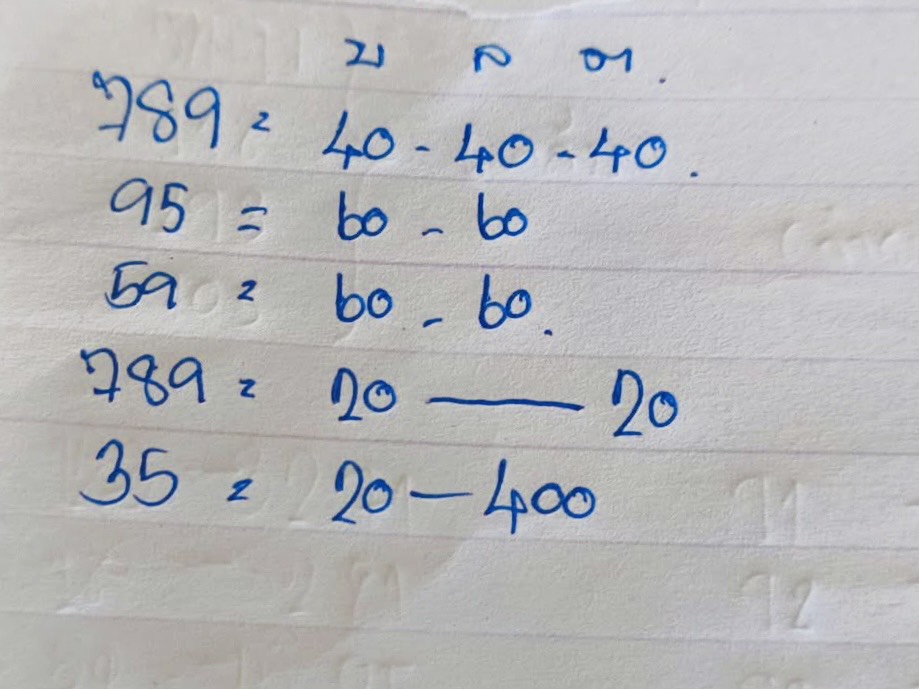 บ ล ต.
789 = 40 - 40 - 40.
95 = 60 - 60
59 = 60 - 60.
789 = 20 — 20
35 = 20 - 400